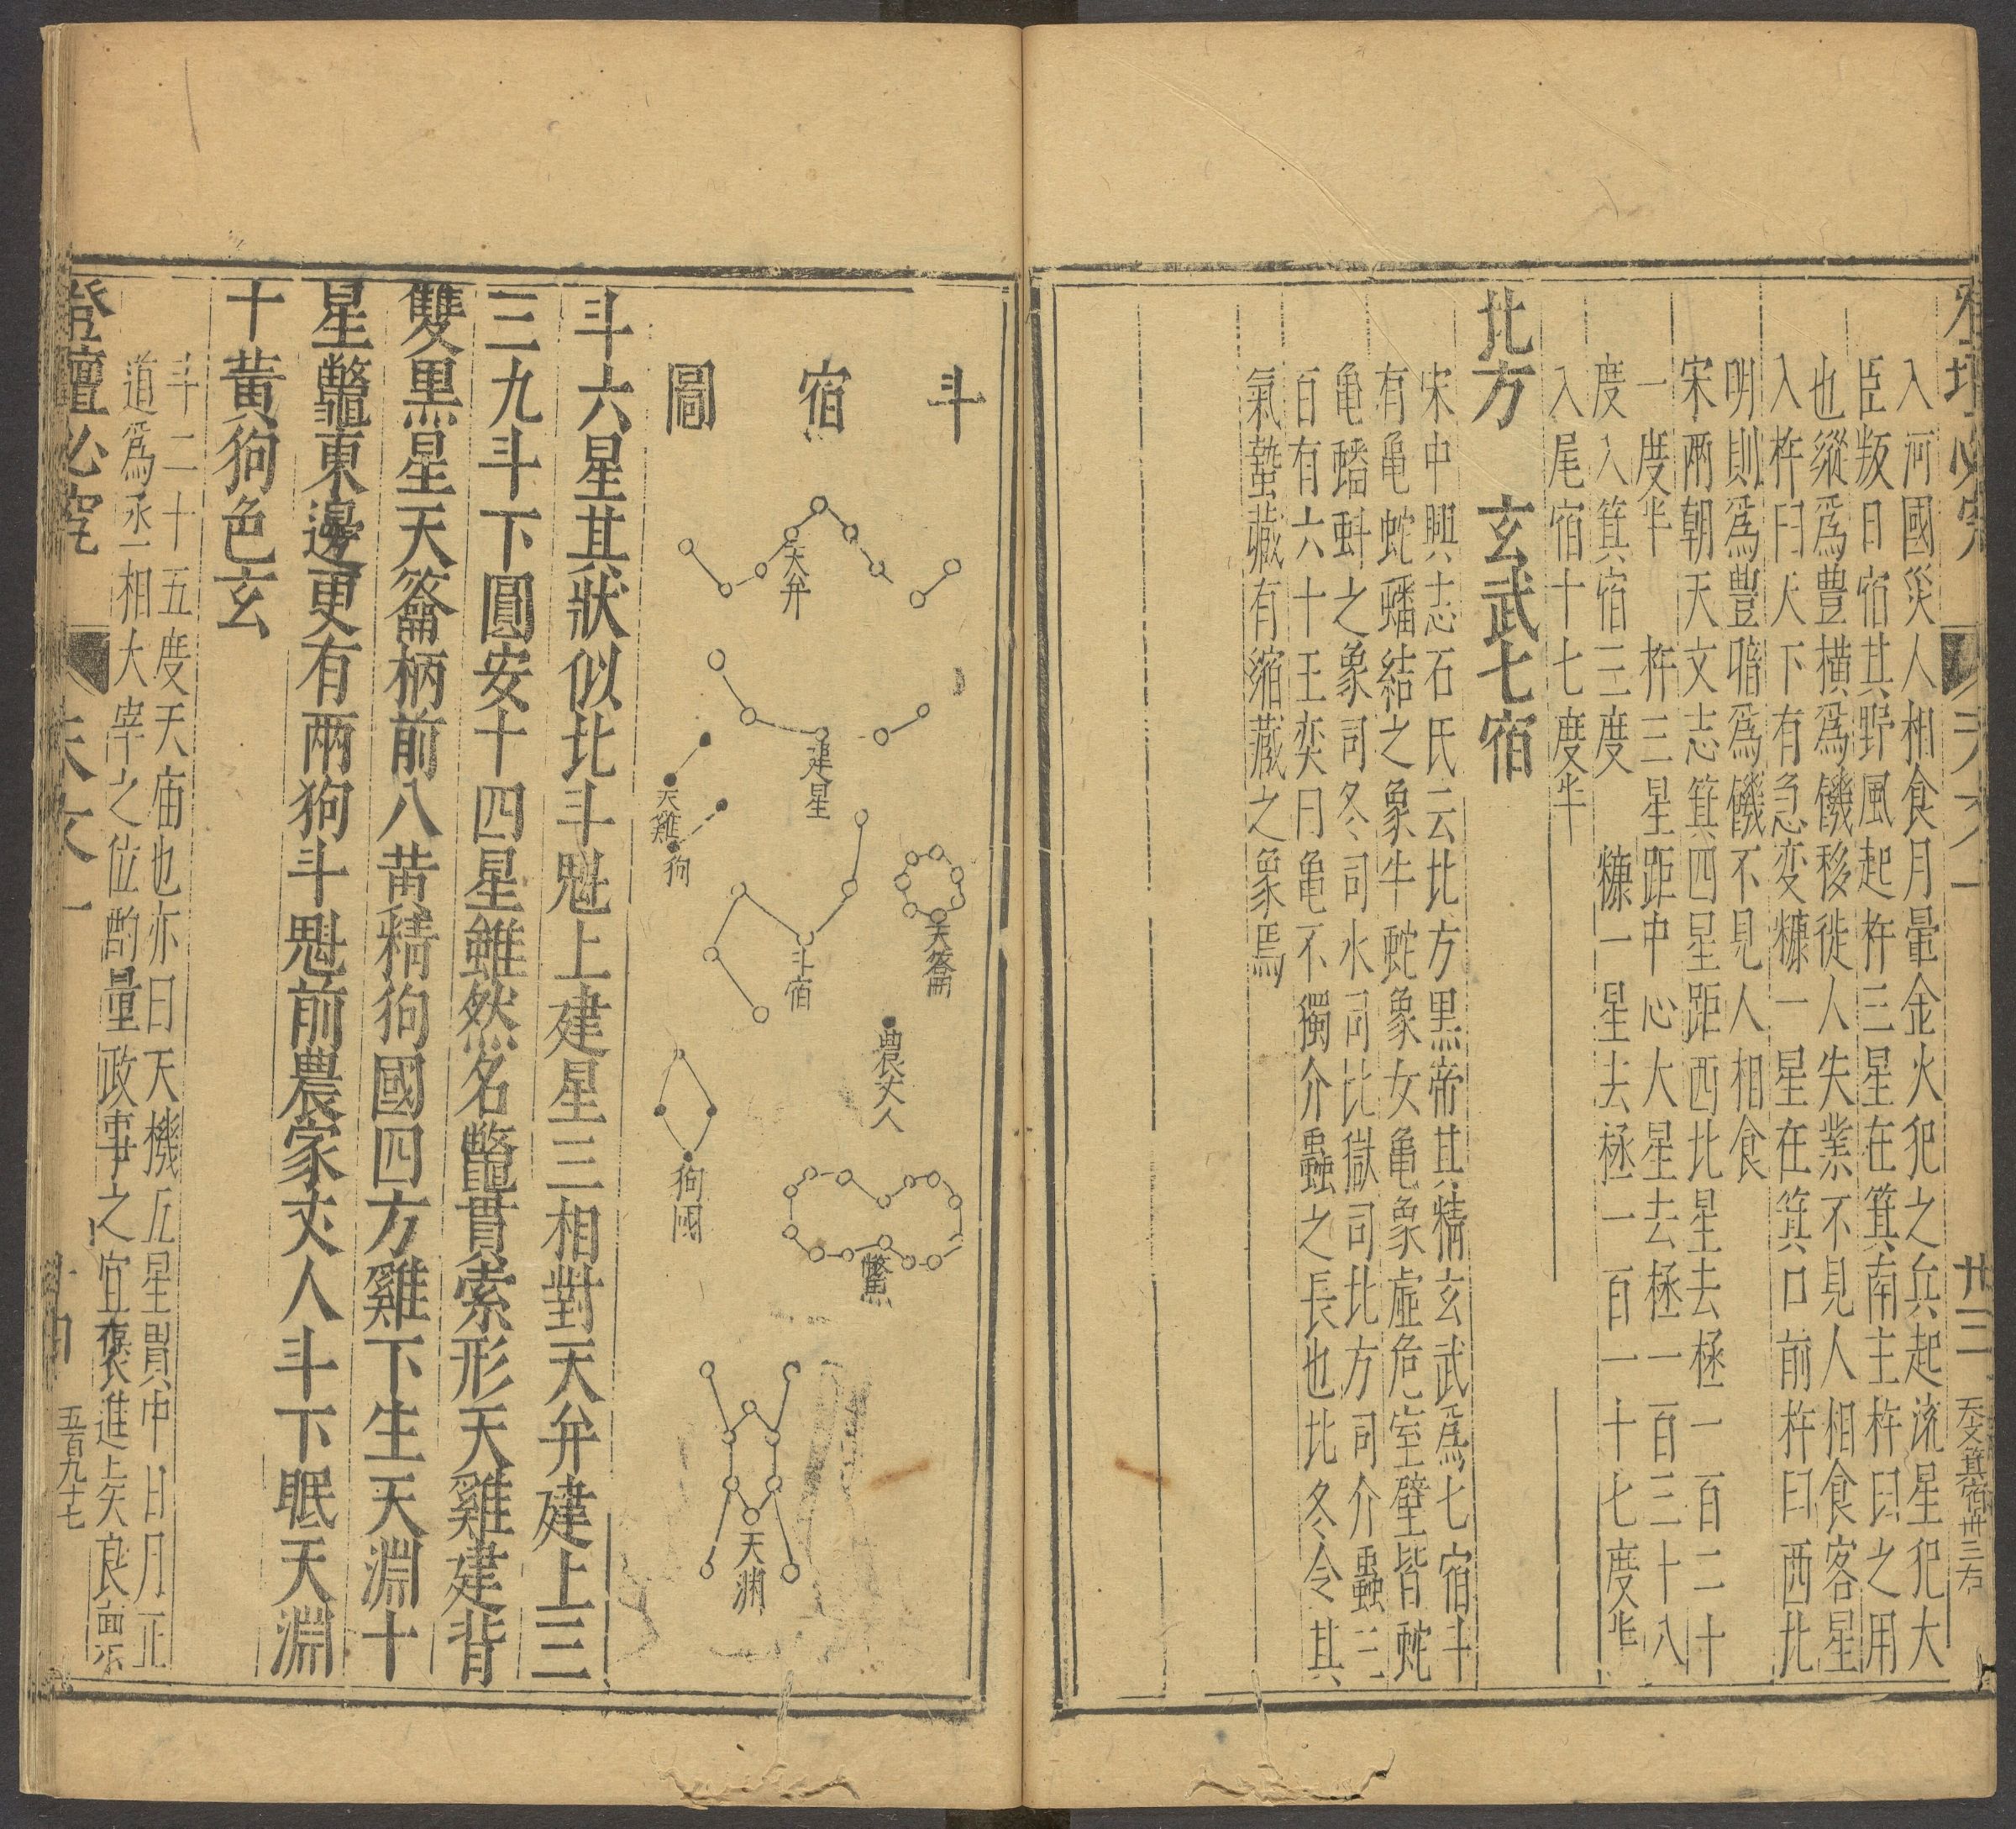 入河國災人相食月暈金火犯之兵起流星犯大
臣叛日宿其野風起杵三星在箕南主杵臼之用
也縱爲豊横爲饑移徙人失業不見人相食客星
入杵臼天下有急变糠一星在箕口前杵臼西北
明則爲豊暗爲饑不見人相食
宋兩朝天文志箕四星距西北星去極一百二十
一度半 杵三星距中心大星去極一百三十八
度入箕宿三度 糠一星去極一百一十七度半
入尾宿十七度半
北方 玄武七宿
宋中興志石氏云北方黒帝其精玄武爲七宿斗
有龜蛇蟠結之象牛蛇象女龜象虛危室壁皆蛇
龜蟠虯之象司冬司水司北嶽司北方司介蟲三
百有六十王奕曰龜不獨介蟲之長也北冬令其
氣蟄藏有縮藏之象焉
天文箕宿卅三右
斗宿圖
天弁
建星
天雞
狗
天籥
斗宿
農丈人
狗國
鱉
天渊
斗六星其狀似北斗魁上建星三相對天弁建上三
三九斗下圓安十四星雖然名鼈貫索形天雞建背
雙黒星天籥柄前八黄精狗國四方雞下生天淵十
星鼈東邊更有兩狗斗魁前農家丈人斗下眠天淵
十黄狗色玄
斗二十五度天庙也亦曰天機五星貫中日月正
道爲丞相大宰之位酌量政事之宜褒進上矢良
登壇必究
天文一
五百九十七